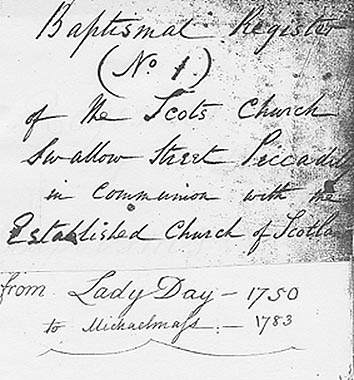 Baptismal Register
(No. 1.)
of the Scots Church
Swallow Street Piccadil
in Communion with the
Established Church of Scotla
from Lady Day - 1750
to Michaelmass. - 1783